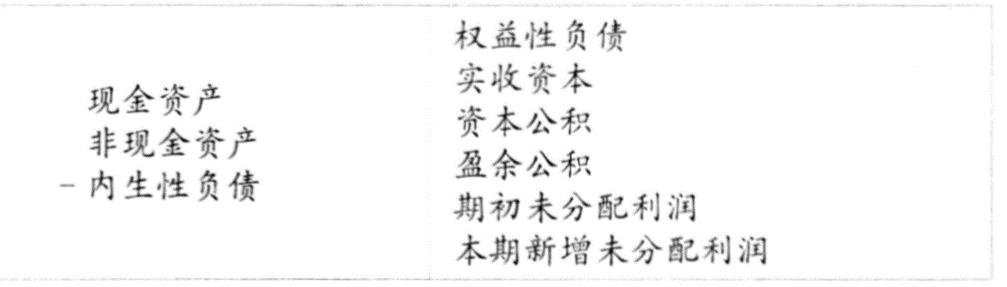 现金资产
非现金资产
- 内生性负债
权益性负债
实收资本
资本公积
盈余公积
期初未分配利润
本期新增未分配利润